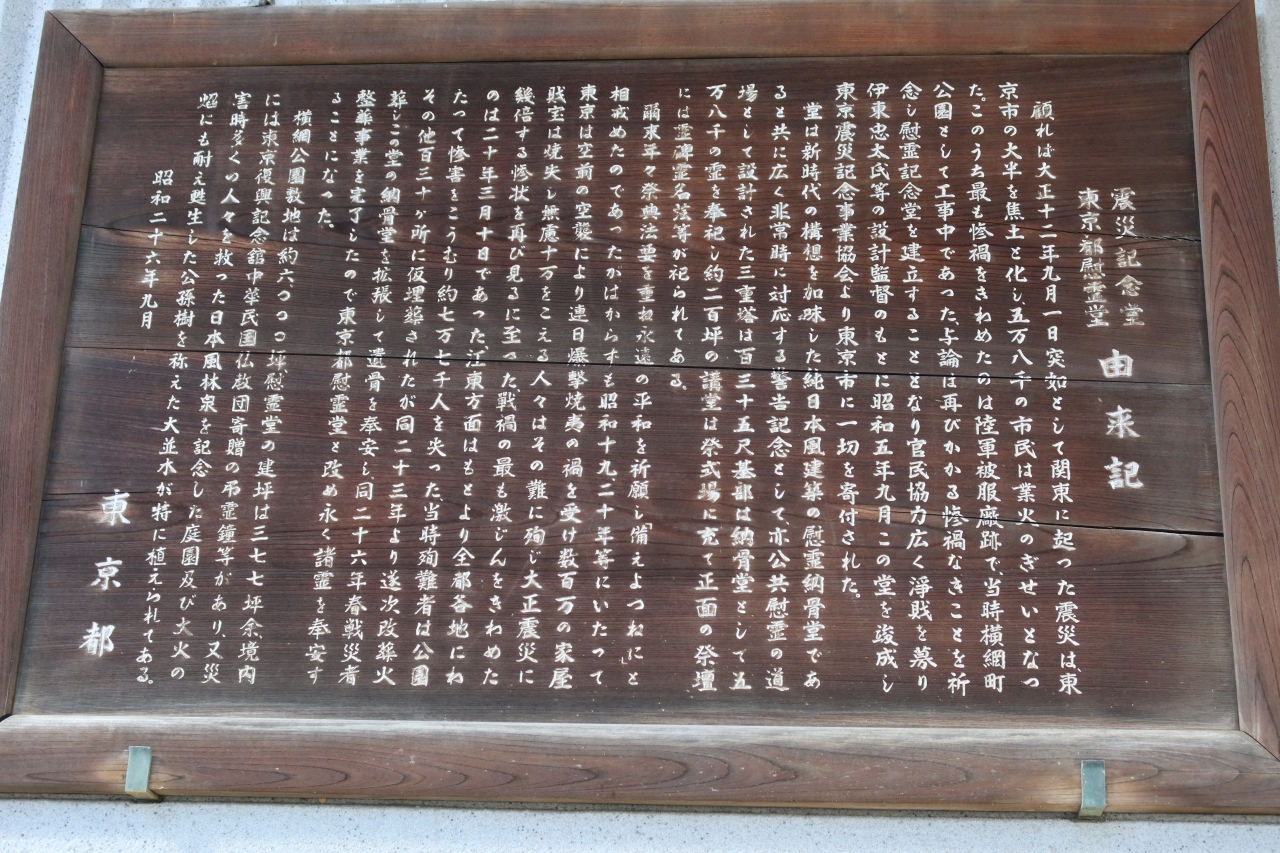 震災記念堂
東京都慰霊堂
由来記
顧れば大正十二年九月一日突如として関東に起った震災は、東
京市の大半を焦土と化し、五万八千の市民は業火のぎせいとなつ
た。このうち最も惨禍をきわめたのは陸軍被服廠跡で当時横網町
公園として工事中であった、与論は再びかかる惨禍なきことを祈
念し慰霊記念堂を建立することとなり官民協力広く浄財を募り
伊東忠太氏等の設計監督のもとに昭和五年九月この堂を竣成し
東京震災記念事業協会より東京市に一切を寄付された。
堂は新時代の構想を加味した純日本風建築の慰霊納骨堂であ
ると共に広く非常時に対応する警告記念として、亦公共慰霊の道
場として設計された三重塔は百三十五尺基部は納骨堂として五
万八千の霊を奉祀し約二百坪の講堂は祭式場に充て正面の祭壇
には霊碑霊名法等が祀られてある。
爾来年々祭典法要を重ね永遠の平和を祈願し「備えよつねに」と
相戒めたのであったかはからずも昭和十九、二十年等にいたって
東京は空前の空襲により連日爆撃焼夷の禍を受け数百万の家屋
財宝は焼失し無慮十万をこえる人々はその難に殉じ大正震災に
幾倍する惨状を再び見るに至った、戦禍の最も激じんをきわめた
のは二十年三月十日であった、江東方面はもとより全都各地にわ
たって惨害をこうむり約七万七千人を失った、当時殉難者は公園
その他百三十ヶ所に仮埋葬されたが同二十三年より逐次改葬火
葬しこの堂の納骨堂を拡張して遺骨を奉安し同二十六年春戦災者
整葬事業を完了したので東京都慰霊堂と改め永く諸霊を奉安す
ることになった。
横網公園敷地は約六〇〇〇坪、慰霊堂の建坪は三七七坪余、境内
には東京復興記念館中華民国仏教団寄贈の弔霊鐘等があり、又災
害時多くい人々を救った日本風林泉を記念した庭園及び大火の
焔にも耐え甦生した公孫樹を称えた大並木が特に植えられてある。
昭和二十六年九月
東京都